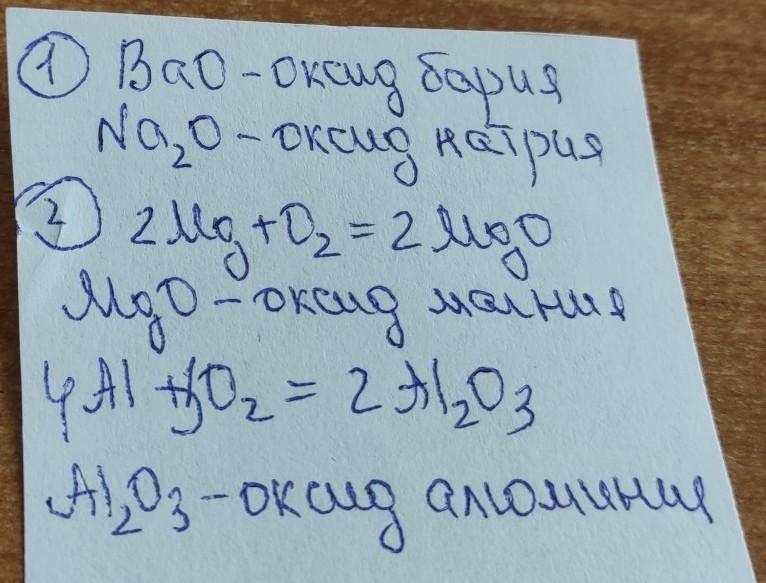 1 BaO - оксид бария
Na₂O - оксид натрия
2 2Mg + O₂ = 2MgO
MgO - оксид магния
4Al + 3O₂ = 2Al₂O₃
Al₂O₃ - оксид алюминия